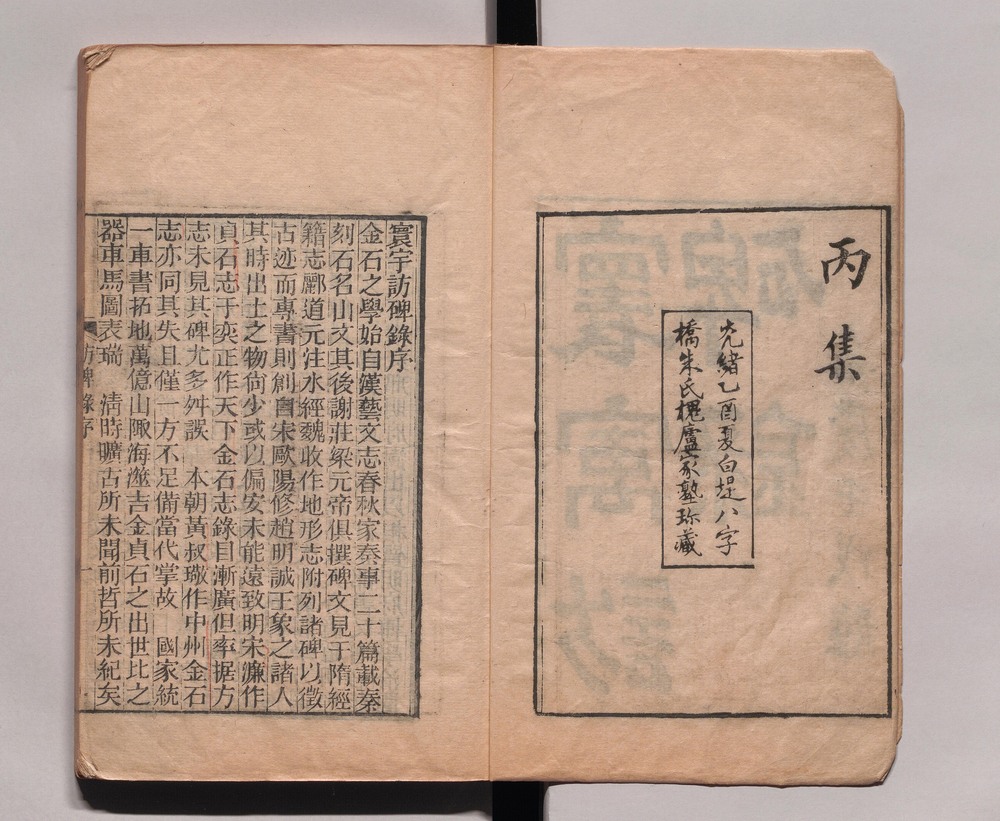 丙集
光緒乙酉夏白堤八字
橋朱氏槐廬家塾珍藏
寰宇訪碑錄序
金石之學始自漢藝文志春秋家奏事二十篇載秦
刻石名山文其後謝莊梁元帝俱撰碑文見于隋經
籍志酈道元注水經魏收作地形志附列諸碑以徵
古迹而專書則創自宋歐陽修趙明誠王象之諸人
其時出土之物尚少或以偏安未能遠致明宋濂作
貞石志于奕正作天下金石志錄目漸廣但率据方
志未見其碑尤多舛誤 本朝黃叔璥作中州金石
志亦同其失且僅一方不足備當代掌故 國家統
一車書拓地萬億山陬海澨吉金貞石之出世比之
器車馬圖表瑞 淸時曠古所未聞前哲所未紀矣
訪碑錄序 一